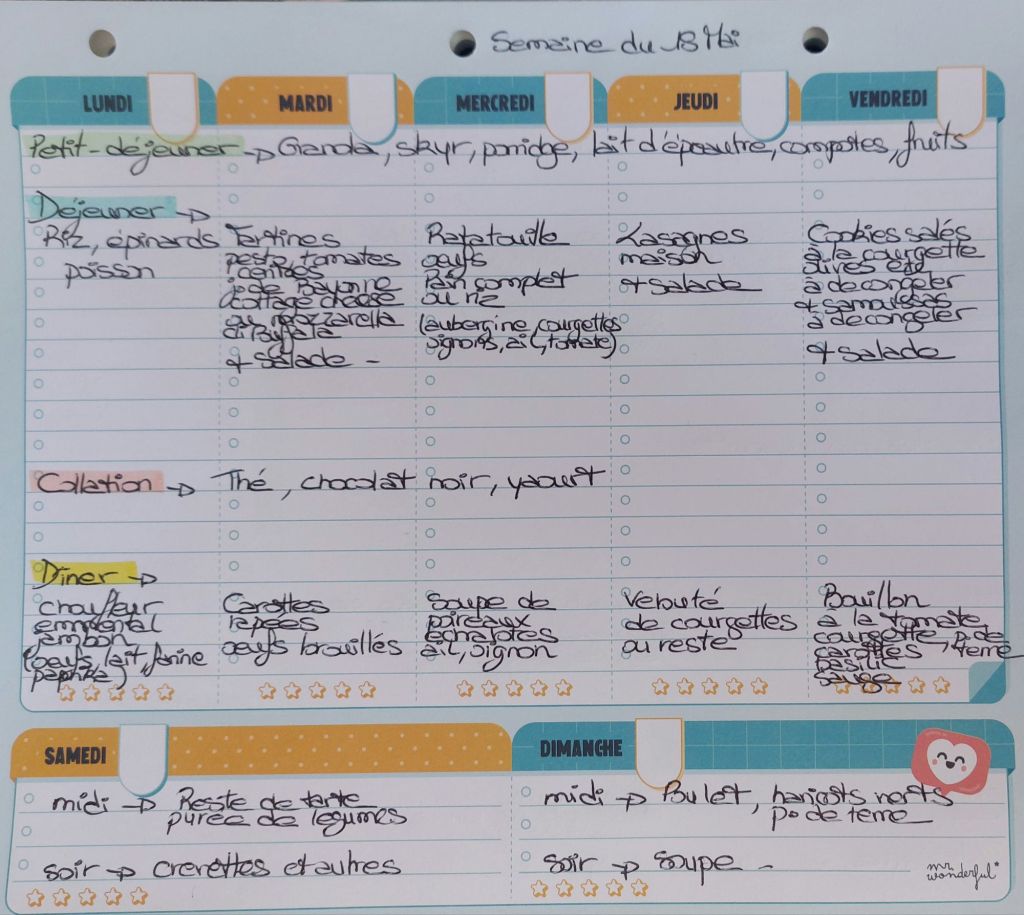 Semaine du 18 Mai
LUNDI MARDI MERCREDI JEUDI VENDREDI
Petit-déjeuner → Granola, skyr, porridge, lait d'épeautre, compotes, fruits
Déjeuner →
Riz, épinards
poisson
Tartines
pesto, tomates
cerises
j. de Bayonne
cottage cheese
ou mozzarella
di Buffala
+ Salade -
Ratatouille
oeufs
Pain complet
ou riz
(aubergine, courgettes
oignons, ail, tomate)
Lasagnes
maison
+ Salade
Cookies salés
à la courgette
olives
à decongeler
+ samoussas
à decongeler
+ Salade
Collation → Thé, chocolat noir, yaourt
Dîner →
choufleur
emmental
jambon
(oeufs, lait, farine
paprika)
Carottes
rapées
oeufs brouillés
Soupe de
poireaux
échalotes
ail, oignon
Velouté
de courgettes
ou reste
Bouillon
à la tomate
courgette, p. de
carottes terre
basilic
sauge
SAMEDI
midi → Reste de tarte
purée de légumes
soir → crevettes et autres
DIMANCHE
midi → Poulet, haricots verts
p. de terre
soir → soupe -
mr.
wonderful*